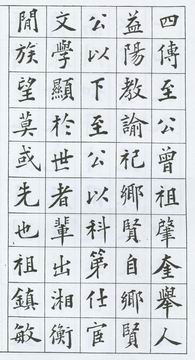 四傳至公曾祖肇奎舉人
益陽教諭公祀鄉賢自鄉賢
公以下至公以科第仕宦
文學顯於世者輩出湘衡
閒族望莫或先也祖鎮敏